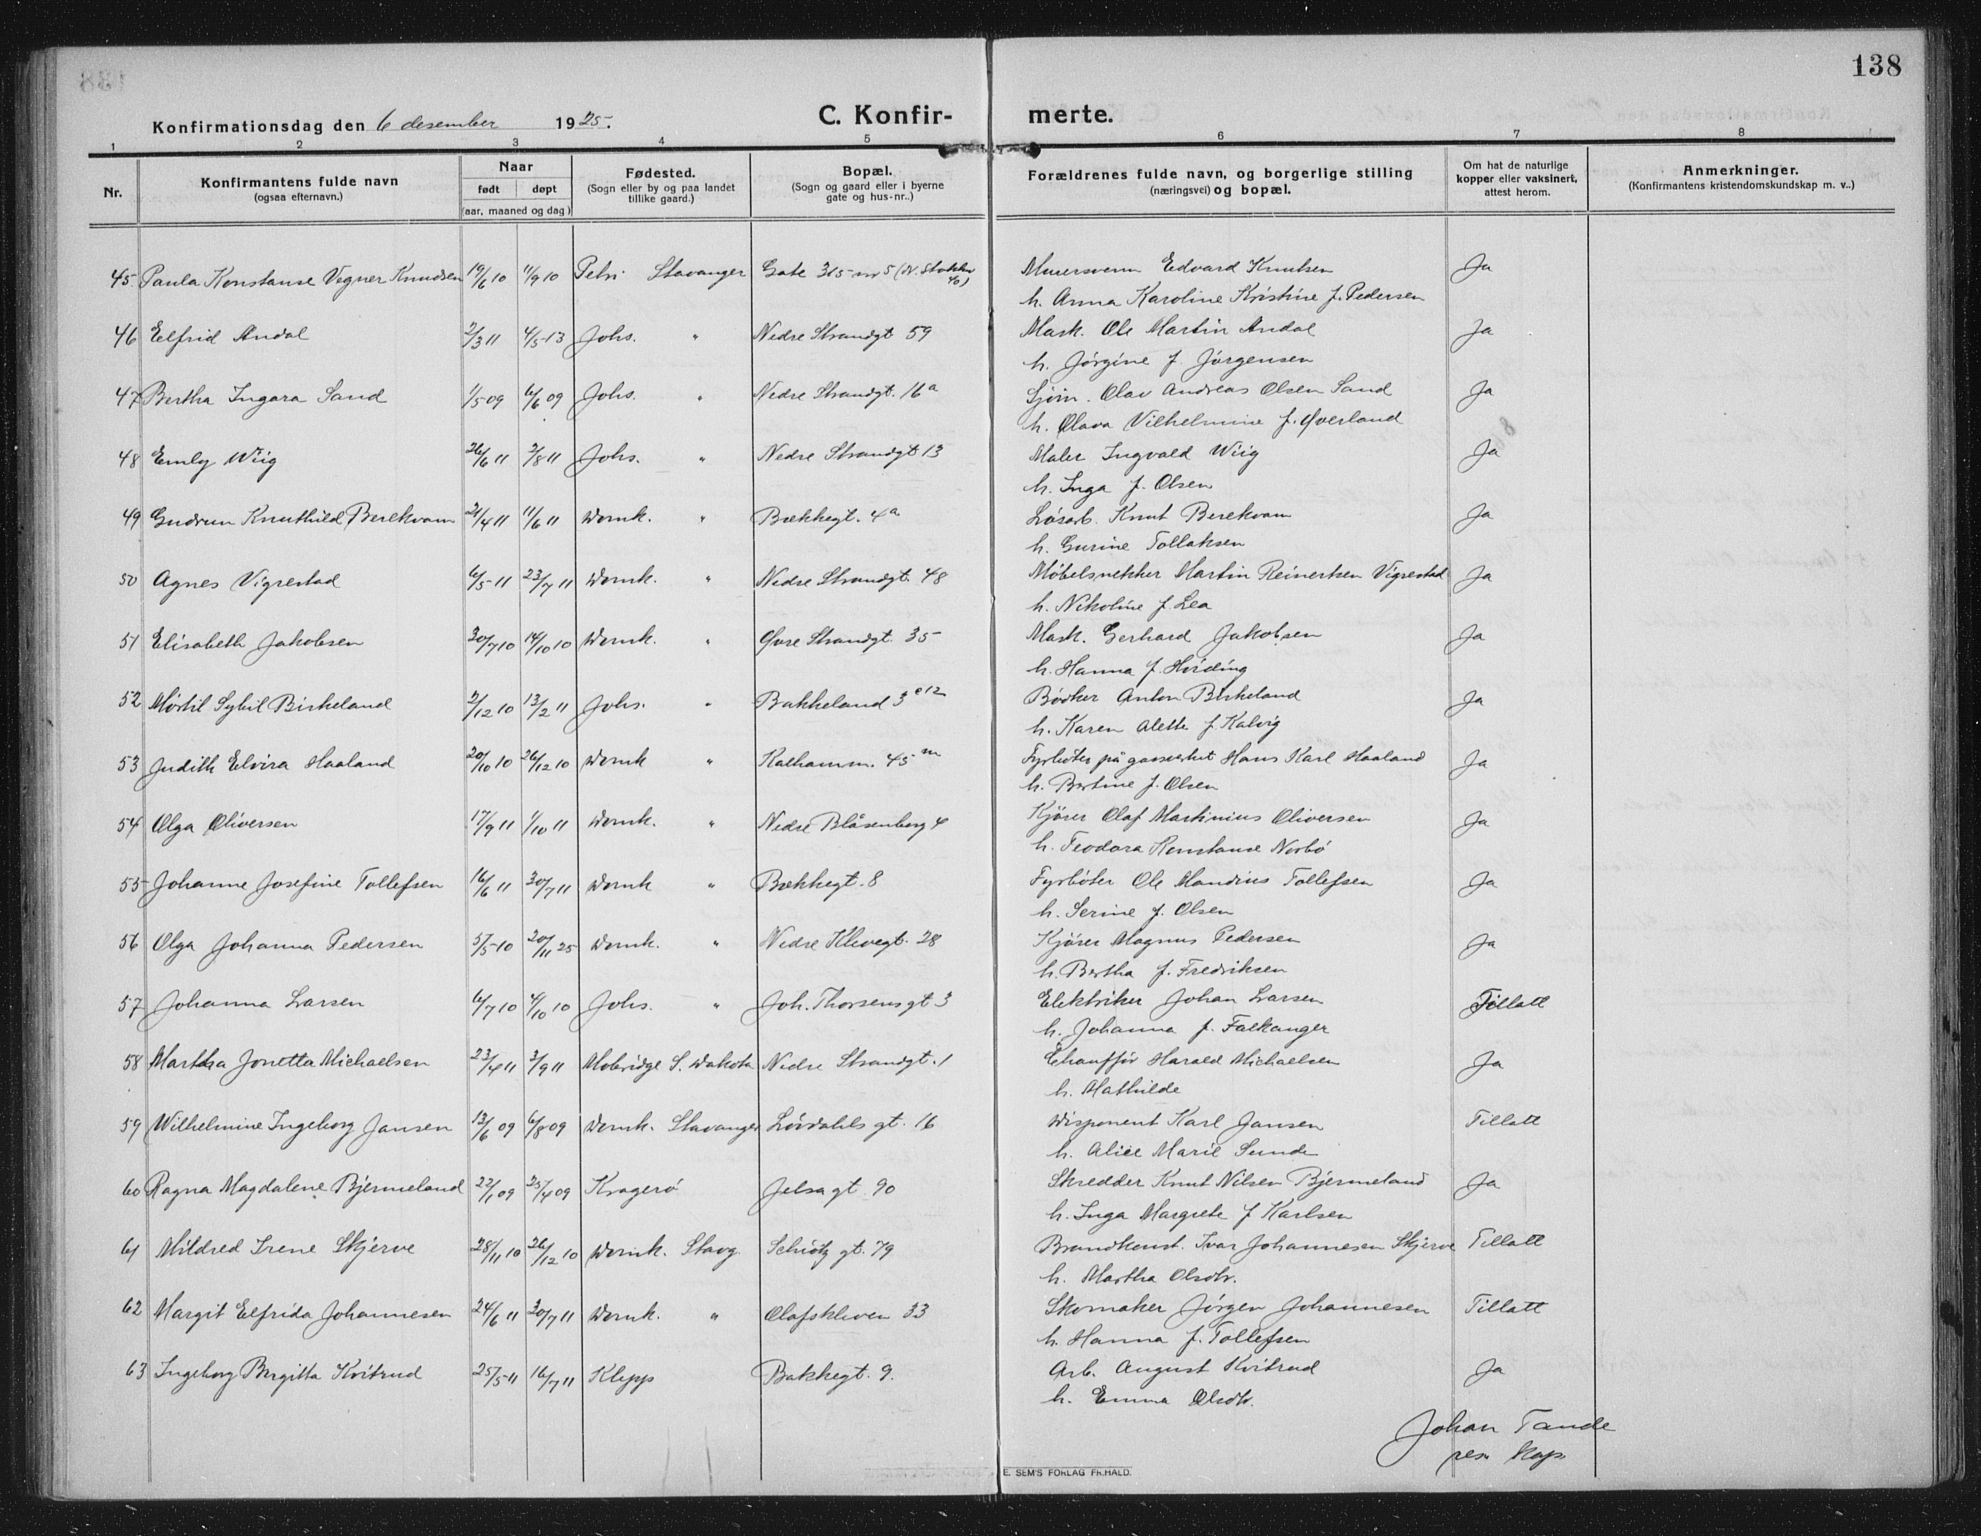 138
Konfirmationsdag den 6 desember 1925.
C. Konfir- merte.
1 2 3 4 5 6 7 8
Nr.
Konfirmantens fulde navn
(ogsaa efternavn.)
Naar
født døpt
(aar, maaned og dag)
Fødested.
(Sogn eller by og paa landet
tillike gaard.)
Bopæl.
(Sogn og gaard eller i byerne
gate og hus-nr.)
Forældrenes fulde navn, og borgerlige stilling
(næringsvei) og bopæl.
Om hat de naturlige
kopper eller vaksinert,
attest herom.
Anmerkninger.
(Konfirmantens kristendomskundskap m. v.)
45 Paula Konstanse Vegner Knudsen 19/6 10 11/9 10 Petri Stavanger Gate 315 nr 5 (N. Stokkv 40) Murersvenn Edvard Knutsen Ja
h. Anna Karoline Kristine f. Pedersen
46 Elfrid Andal 2/3 11 4/5 13 Johs. " Nedre Strandgt 59 Mask. Ole Martin Andal Ja
h. Jørgine f. Jørgensen
47 Bertha Ingara Sand 1/5 09 6/6 09 Johs. " Nedre Strandgt. 16a Sjøm. Olav Andreas Olsen Sand Ja
h. Olava Vilhelmine f. Øverland
48 Emly Wiig 26/6 11 2/8 11 Johs. " Nedre Strandgt 13 Maler Ingvald Wiig Ja
h. Inga f. Olsen
49 Gudrun Knuthild Berekvam 21/4 11 11/6 11 Domk. " Bækkegt. 4a Løsarb. Knut Berekvam Ja
h. Gurine Tollaksen
50 Agnes Vigrestad 6/5 11 23/7 11 Domk. " Nedre Strandgt. 48 Møbelsnekker Martin Reinertsen Vigrestad Ja
h. Nikoline f Lea
51 Elisabeth Jakobsen 30/7 10 14/10 10 Domk. " Øvre Strandgt. 35 Mask. Gerhard Jakobsen Ja
h. Hanna f. Hviding
52 Sybil Birkeland 2/12 10 13/2 11 Johs. " Bakkeland 3 Bødker Anton Birkeland Ja
h. Karen Alette f. Kalvig
53 Judith Elvira Haaland 20/10 10 26/12 10 Domk " Kalhamm. 45 m Fyrbøter på gassverket Hans Karl Haaland Ja
h. Bertine f. Olsen
54 Olga Oliversen 17/9 11 1/10 11 Domk. " Nedre Blåsenborg 4 Kjører Olaf Martinius Oliversen Ja
h. Teodora Konstanse Norbø
55 Johanne Josefine Tollefsen 16/6 11 30/7 11 Domk " Bækkegt. 8 Fyrbøter Ole Mandius Tollefsen Ja
h. Serine f. Olsen
56 Olga Johanna Pedersen 5/5 10 20/11 25 Domk. " Nedre Klevegt. 28 Kjører Magnus Pedersen Ja
h. Bertha f. Fredriksen
57 Johanna Larsen 6/7 10 4/10 10 Johs. " Joh. Thorsensgt 3 Elektriker Johan Larsen Tillatt
h. Johanna f. Falkanger
58 Martha Jonetta Michaelsen 23/4 11 3/9 11 Mobridge S. Dakota Nedre Strandgt. 1 Chauffør Harald Michaelsen Ja
h. Mathilde
59 Wilhelmine Ingeborg Jansen 13/6 09 6/8 09 Domk. Stavanger Løvdahls gt. 16 Disponent Karl Jansen Tillatt
h. Alice Marie Sunde
60 Ragna Magdalene Bjermeland 22/1 09 25/4 09 Kragerø Jelsagt 90 Skredder Knut Nilsen Bjermeland Ja
h. Inga Margrete f Karlsen
61 Mildred Irene Skjerve 28/11 10 26/12 10 Domk. Stavg. Schiøtz gt. 79 Brandkonst. Ivar Johannesen Skjerve Tillatt
h. Martha Olsdtr.
62 Margit Elfrida Johannesen 24/6 11 30/7 11 Domk. " Olafskleven 33 Skomaker Jørgen Johannesen Tillatt
h. Hanna f. Tollefsen
63 Ingeborg Bergitta Kvitrud 25/5 11 16/7 11 Klepp Bakkegt. 9. Arb. August Kvitrud Ja
h. Emma Olsdtr.
Johan Tande
res. kap.
E. SEM'S FORLAG FR.HALD.